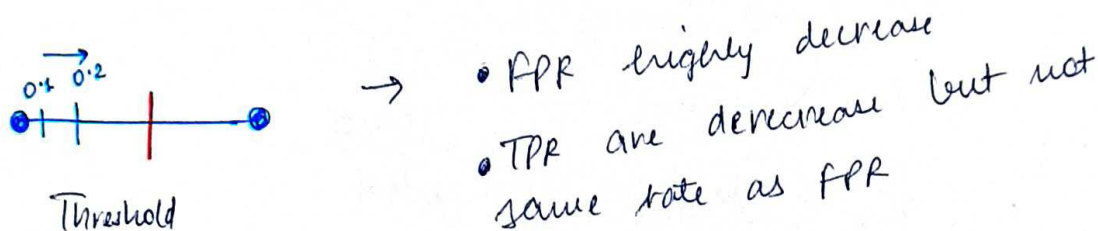 0.1 0.2
Threshold
→ • FPR highly decrease
• TPR are derecrease but not
same rate as FPR